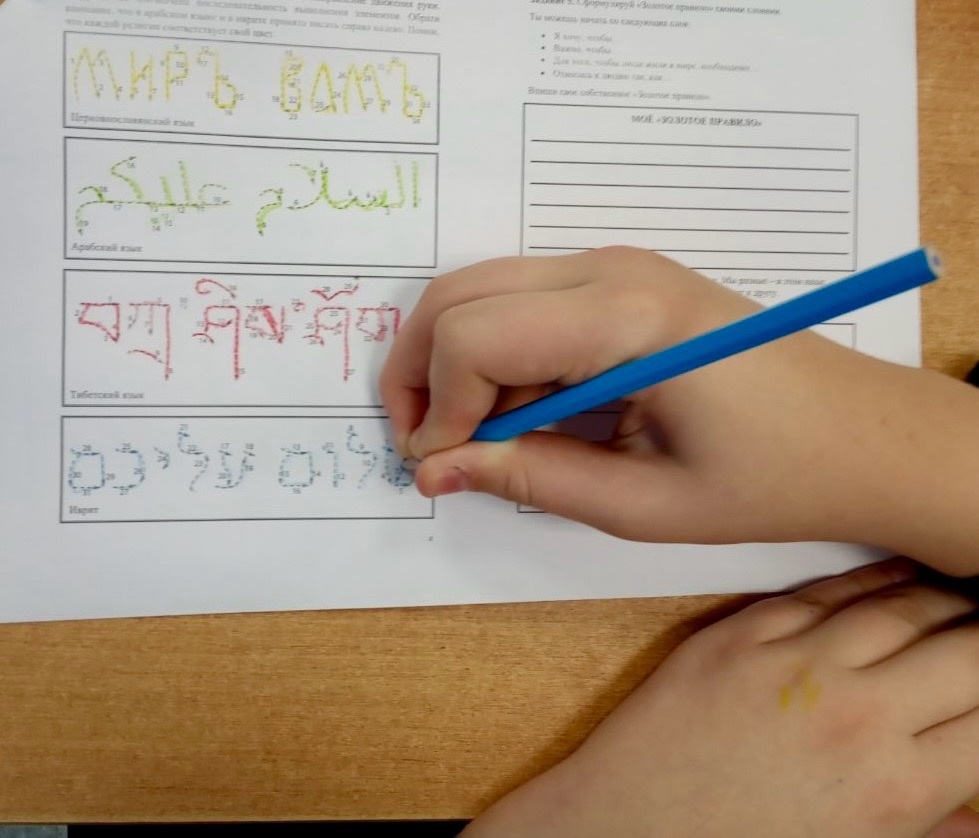 последовательность выполнения элементов. Обрати
внимание, что в арабском языке и в иврите принято писать справа налево. Помни,
что каждой религии соответствует свой цвет.
МИРЪ ВАМЪ
Церковнославянский язык
السلام عليكم
Арабский язык
Тибетский язык
שלום עליכם
Иврит
Сформулируй «Золотое правило» своими словами.
Ты можешь начать со следующих слов:
• Я хочу, чтобы
• Важно, чтобы
• Для того, чтобы люди жили в мире, необходимо...
• Относись к людям так, как
Впиши свое собственное «Золотое правило»
МОЁ «ЗОЛОТОЕ ПРАВИЛО»